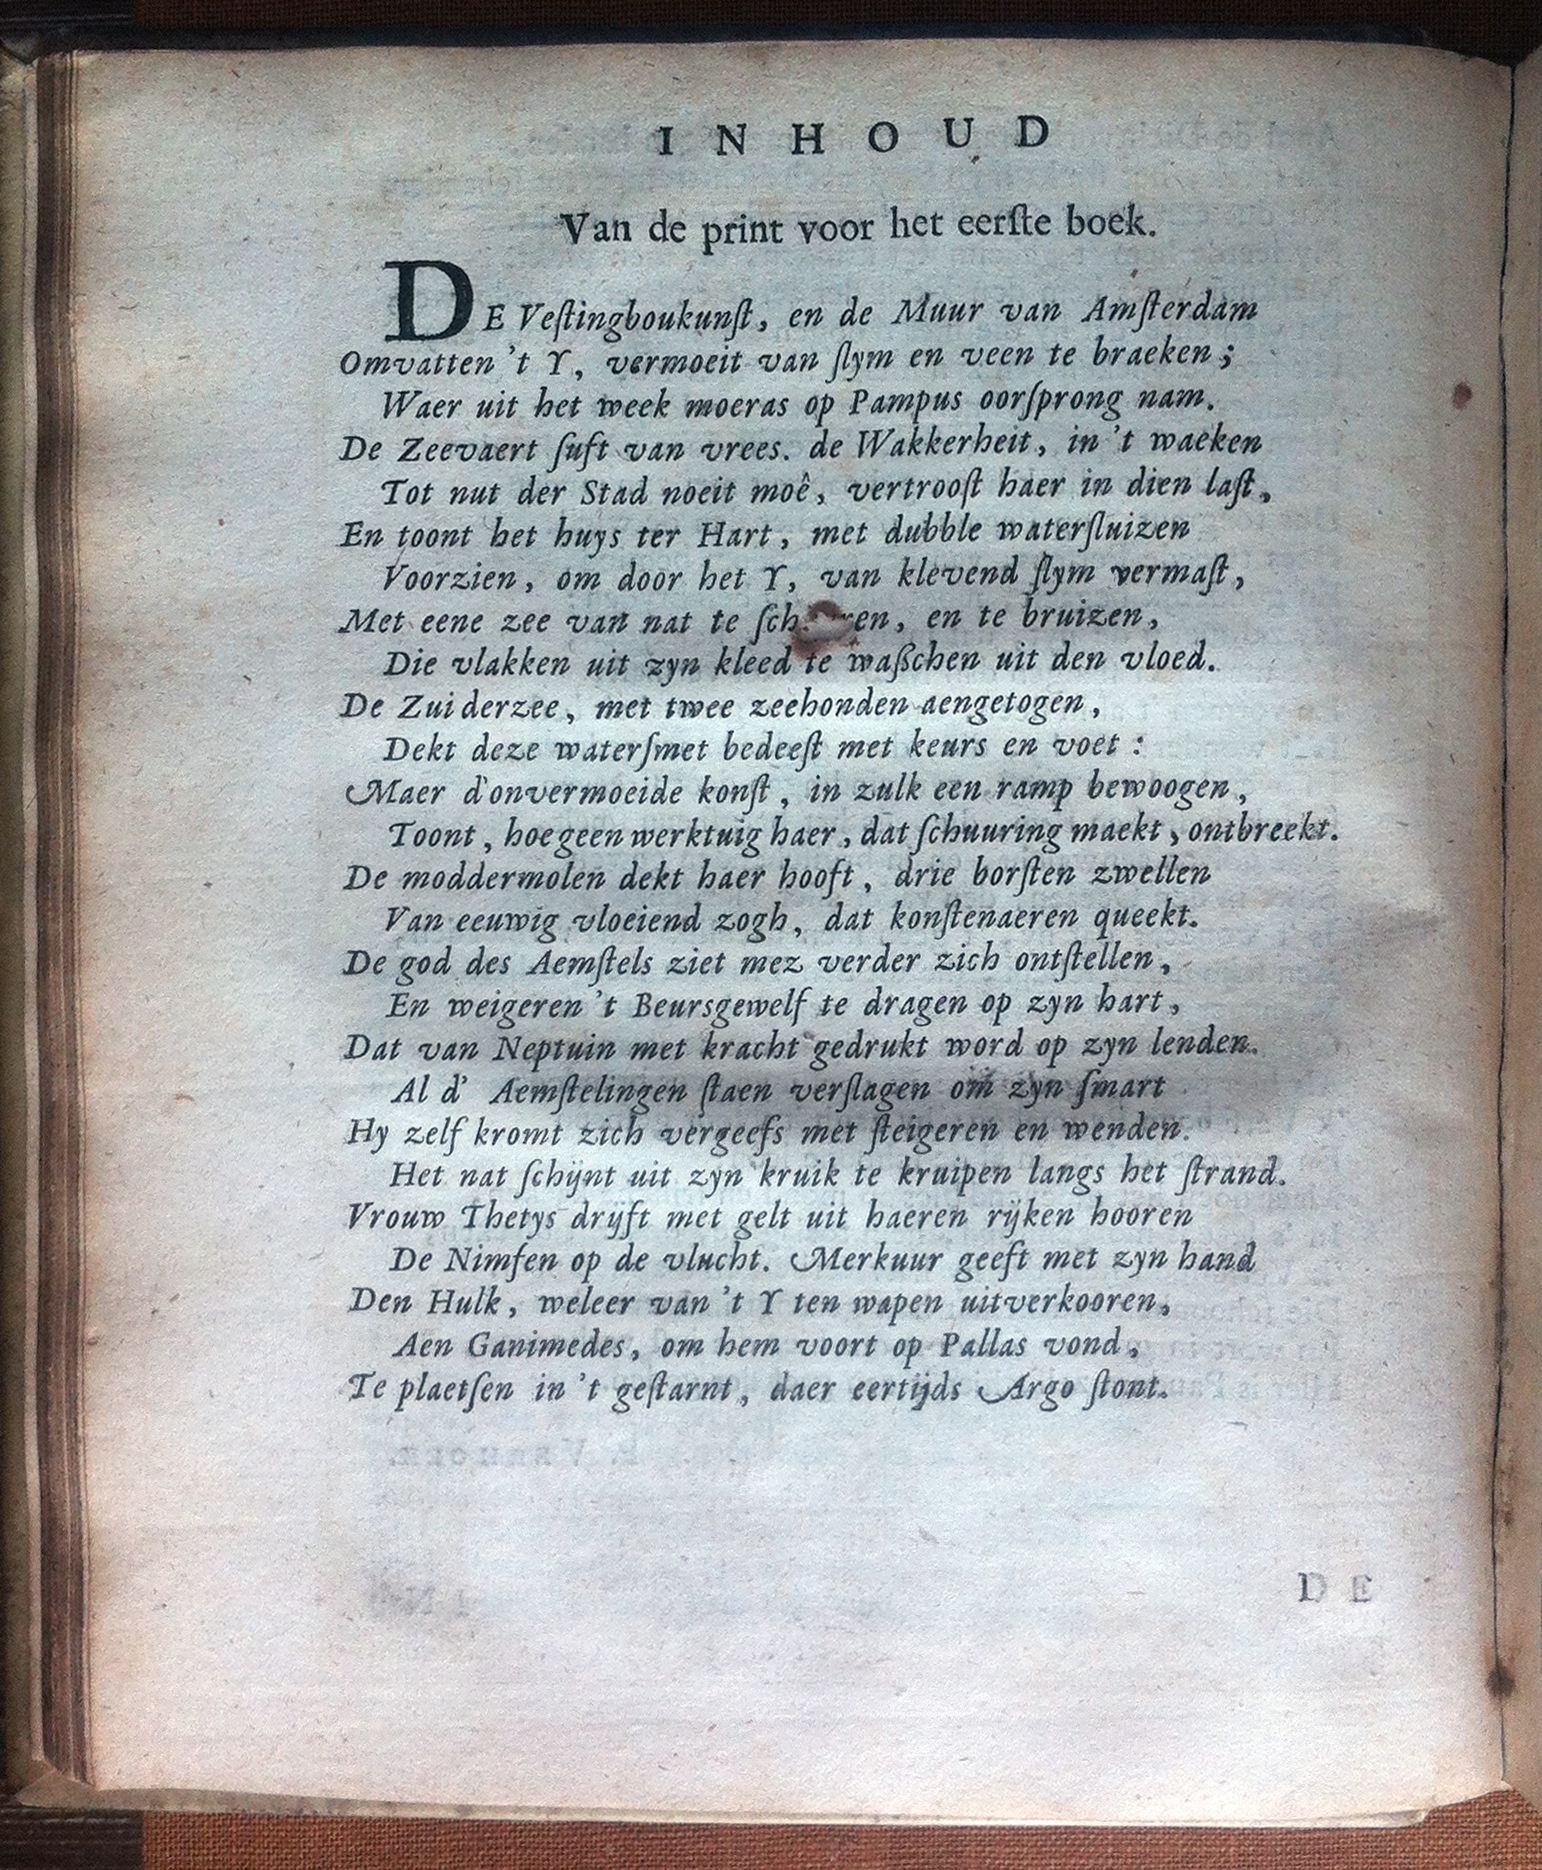 INHOUD
Van de print voor het eerſte boek.
DE Veſtingboukunſt, en de Muur van Amſterdam
Omvatten 't Y, vermoeit van ſlym en veen te braeken;
Waer uit het week moeras op Pampus oorſprong nam.
De Zeevaert ſuft van vrees. de Wakkerheit, in 't waeken
Tot nut der Stad noeit moê, vertrooſt haer in dien laſt,
En toont het huys ter Hart, met dubble waterſluizen
Voorzien, om door het Y, van klevend ſlym vermaſt,
Met eene zee van nat te , en te bruizen,
Die vlakken uit zyn kleed te waßchen uit den vloed.
De Zuiderzee, met twee zeehonden aengetogen,
Dekt deze waterſmet bedeeſt met keurs en voet:
Maer d'onvermoeide konſt, in zulk een ramp bewoogen,
Toont, hoe geen werktuig haer, dat ſchuuring maekt, ontbreekt.
De moddermolen dekt haer hooft, drie borſten zwellen
Van eeuwig vloeiend zogh, dat konſtenaeren queekt.
De god des Aemſtels ziet mez verder zich ontſtellen,
En weigeren 't Beursgewelf te dragen op zyn hart,
Dat van Neptuin met kracht gedrukt word op zyn lenden.
Al d' Aemſtelingen ſtaen verſlagen om zyn ſmart
Hy zelf kromt zich vergeefs met ſteigeren en wenden.
Het nat ſchijnt uit zyn kruik te kruipen langs het ſtrand.
Vrouw Thetys drijft met gelt uit haeren rijken hooren
De Nimfen op de vlucht. Merkuur geeft met zyn hand
Den Hulk, weleer van 't Y ten wapen uitverkooren,
Aen Ganimedes, om hem voort op Pallas vond,
Te plaetſen in 't geſtarnt, daer eertijds Argo ſtont.
DE